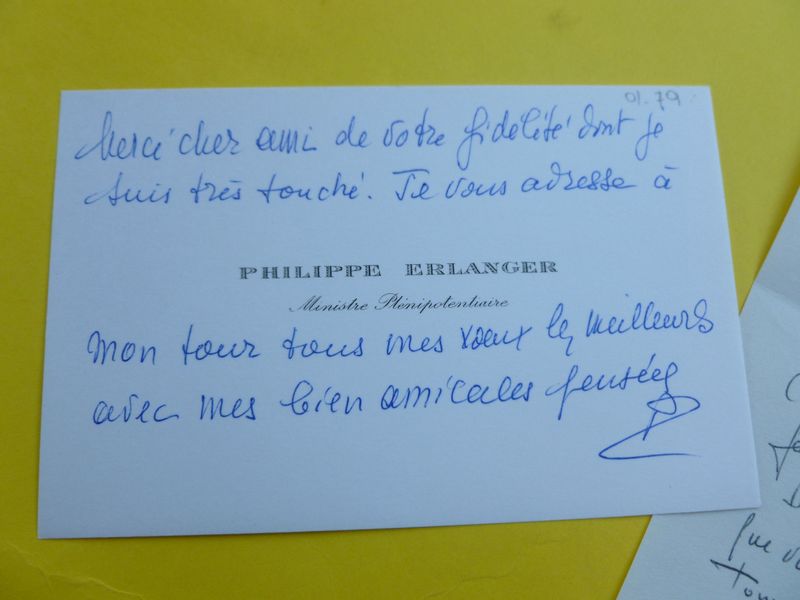 01.79
Merci cher ami de votre fidélité dont je
suis très touché. Je vous adresse à
PHILIPPE ERLANGER
Ministre Plénipotentiaire
mon tour tous mes vœux les meilleurs
avec mes bien amicales pensées
que